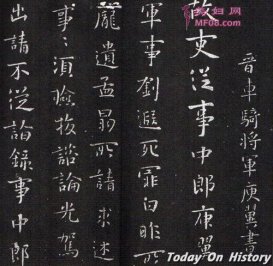 晉車騎將軍庾翼書
故吏從事中郎庾翼
軍事劉遐死罪白昨所
龐遺孟昺所請求迷
事〻須撿校諮論光駕
出請不從詣錄事中郎
MF08.com
Today On History